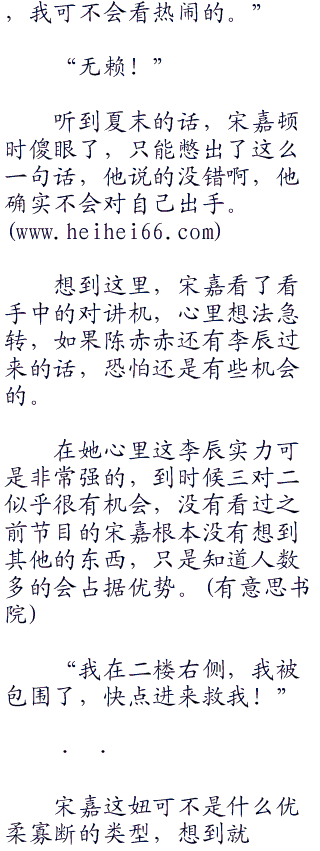 ，我可不会看热闹的。”
“无赖！”
听到夏末的话，宋嘉顿
时傻眼了，只能憋出了这么
一句话，他说的没错啊，他
确实不会对自己出手。
(www.heihei66.com)
想到这里，宋嘉看了看
手中的对讲机，心里想法急
转，如果陈赤赤还有李辰过
来的话，恐怕还是有些机会
的。
在她心里这李辰实力可
是非常强的，到时候三对二
似乎很有机会，没有看过之
前节目的宋嘉根本没有想到
其他的东西，只是知道人数
多的会占据优势。(有意思书
院)
“我在二楼右侧，我被
包围了，快点进来救我！”
．．
宋嘉这妞可不是什么优
柔寡断的类型，想到就